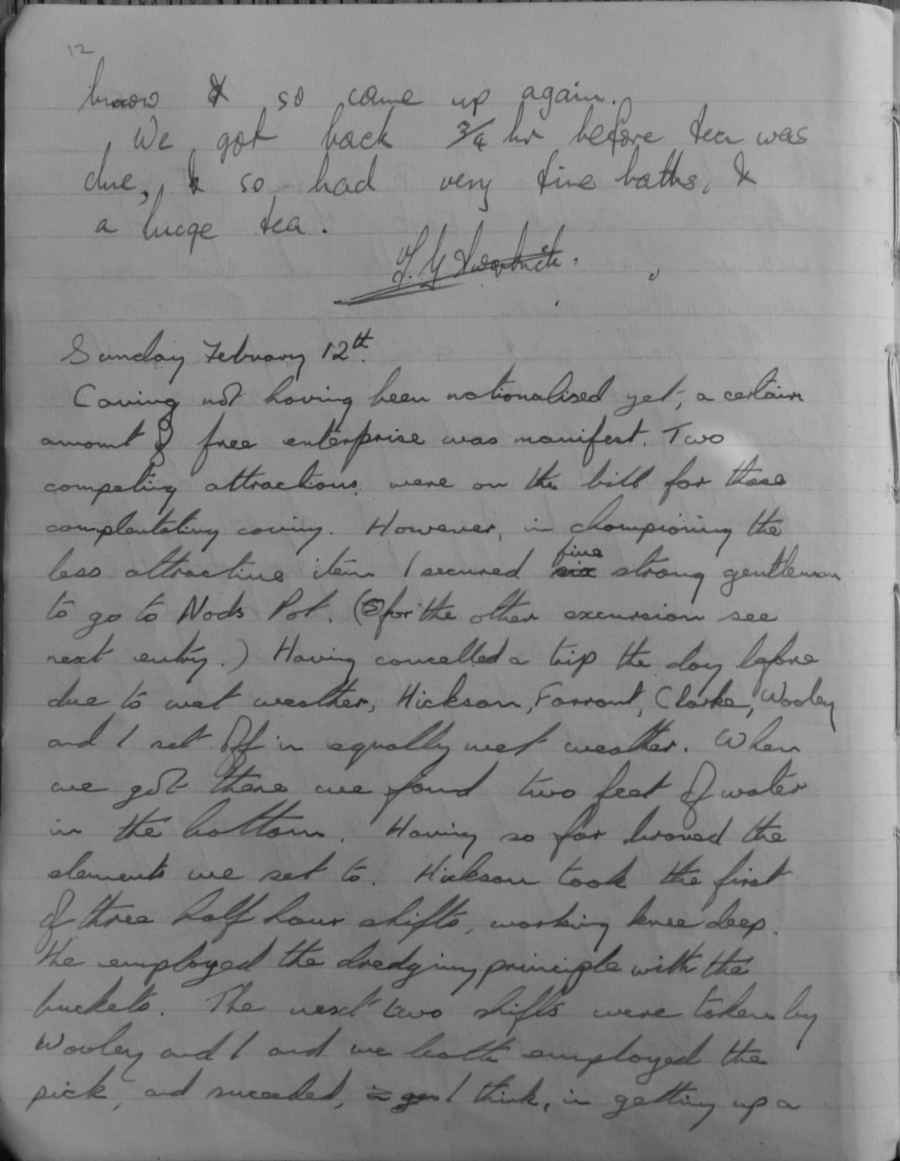 12
know & so came up again.
We got back 3/4 hr before tea was
due, & so had very fine baths, &
a huge tea.
Sunday February 12th.
Caving not having been nationalised yet, a certain
amount of free enterprise was manifest. Two
competing attractions were on the bill for those
complentating caving. However, in championing the
less attractive item I secured six five strong gentlemen
to go to Nods Pot. (For the other excursion see
next entry.) Having cancelled a trip the day before
due to wet weather, Hickson, Farrant, Clarke, Wooley
and I set off in equally wet weather. When
we got there we found two feet of water
in the bottom. Having so far braved the
elements we set to. Hickson took the first
of three half hour shifts, working knee deep.
He employed the dredging principle with the
buckets. The next two shifts were taken by
Wooley and I and we both employed the
pick, and succeeded, I think, in getting up a